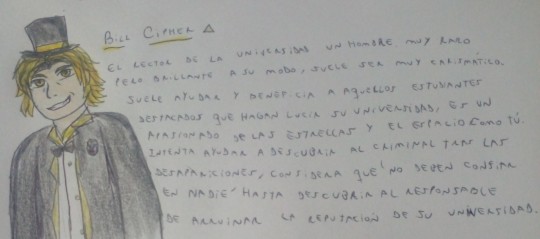 Bill Cipher △
EL RECTOR DE LA UNIVERSIDAD UN HOMBRE MUY RARO
PERO BRILLANTE A SU MODO, SUELE SER MUY CARISMÁTICO.
SUELE AYUDAR Y BENEFICIA A AQUELLOS ESTUDIANTES
DESTACADOS QUE HAGAN LUCIR SU UNIVERSIDAD, ES UN
APASIONADO DE LAS ESTRELLAS Y EL ESPACIO COMO TÚ.
INTENTA AYUDAR A DESCUBRIR AL CRIMINAL TRAS LAS
DESAPARICIONES, CONSIDERA QUE 'NO DEBEN CONFIAR
EN NADIE' HASTA DESCUBRIR AL RESPONSABLE
DE ARRUINAR LA REPUTACIÓN DE SU UNIVERSIDAD.